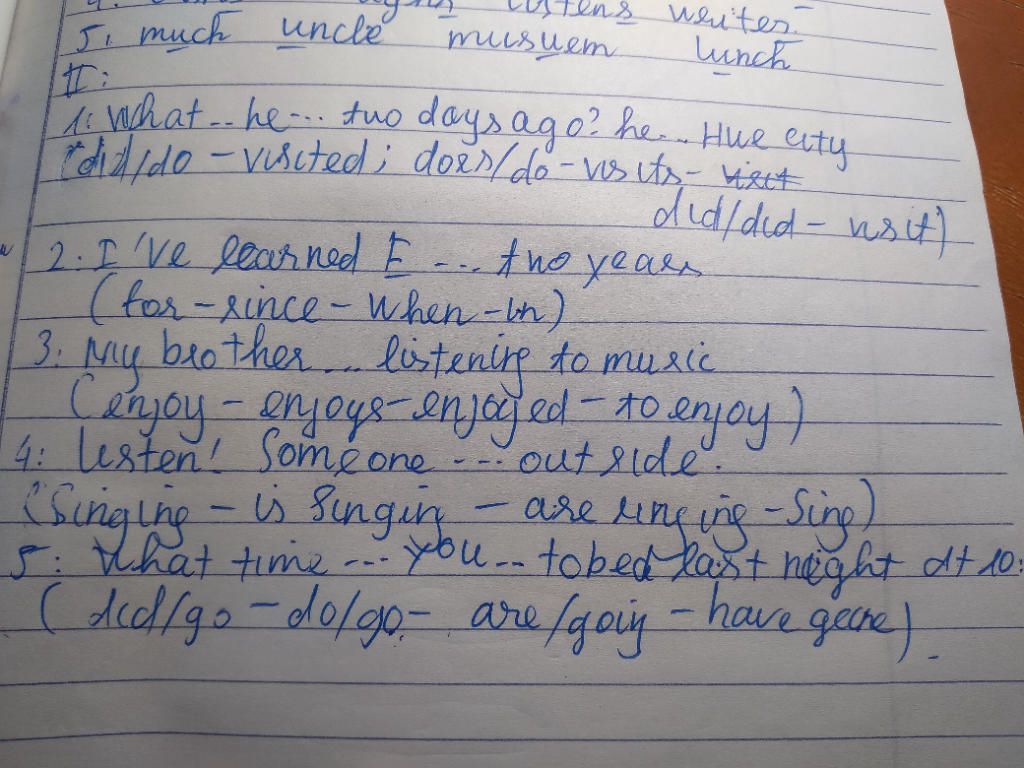 listens writes
5. much uncle musuem lunch
II:
1: What .. he ... two days ago? he .. Hue city
(did/do - visited; does/do - visits - visit
did/did - visit)
2. I've learned E ... two years
(for - since - when - in)
3. My brother ... listening to music
(enjoy - enjoys - enjoyed - to enjoy)
4: listen! Someone ... out side.
(Singing - is singing - are singing - Sing)
5: What time ... you .. to bed last night At 10:
(did/go - do/go - are/going - have gone).